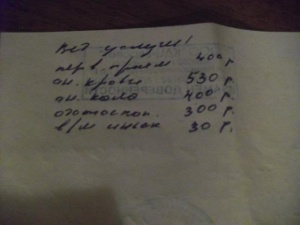 Вет услуги!
перв. прием 400 р
ан. крови 530 р.
ан. кала 400 р.
отоскоп. 300 р.
в/м инъек 30 р.